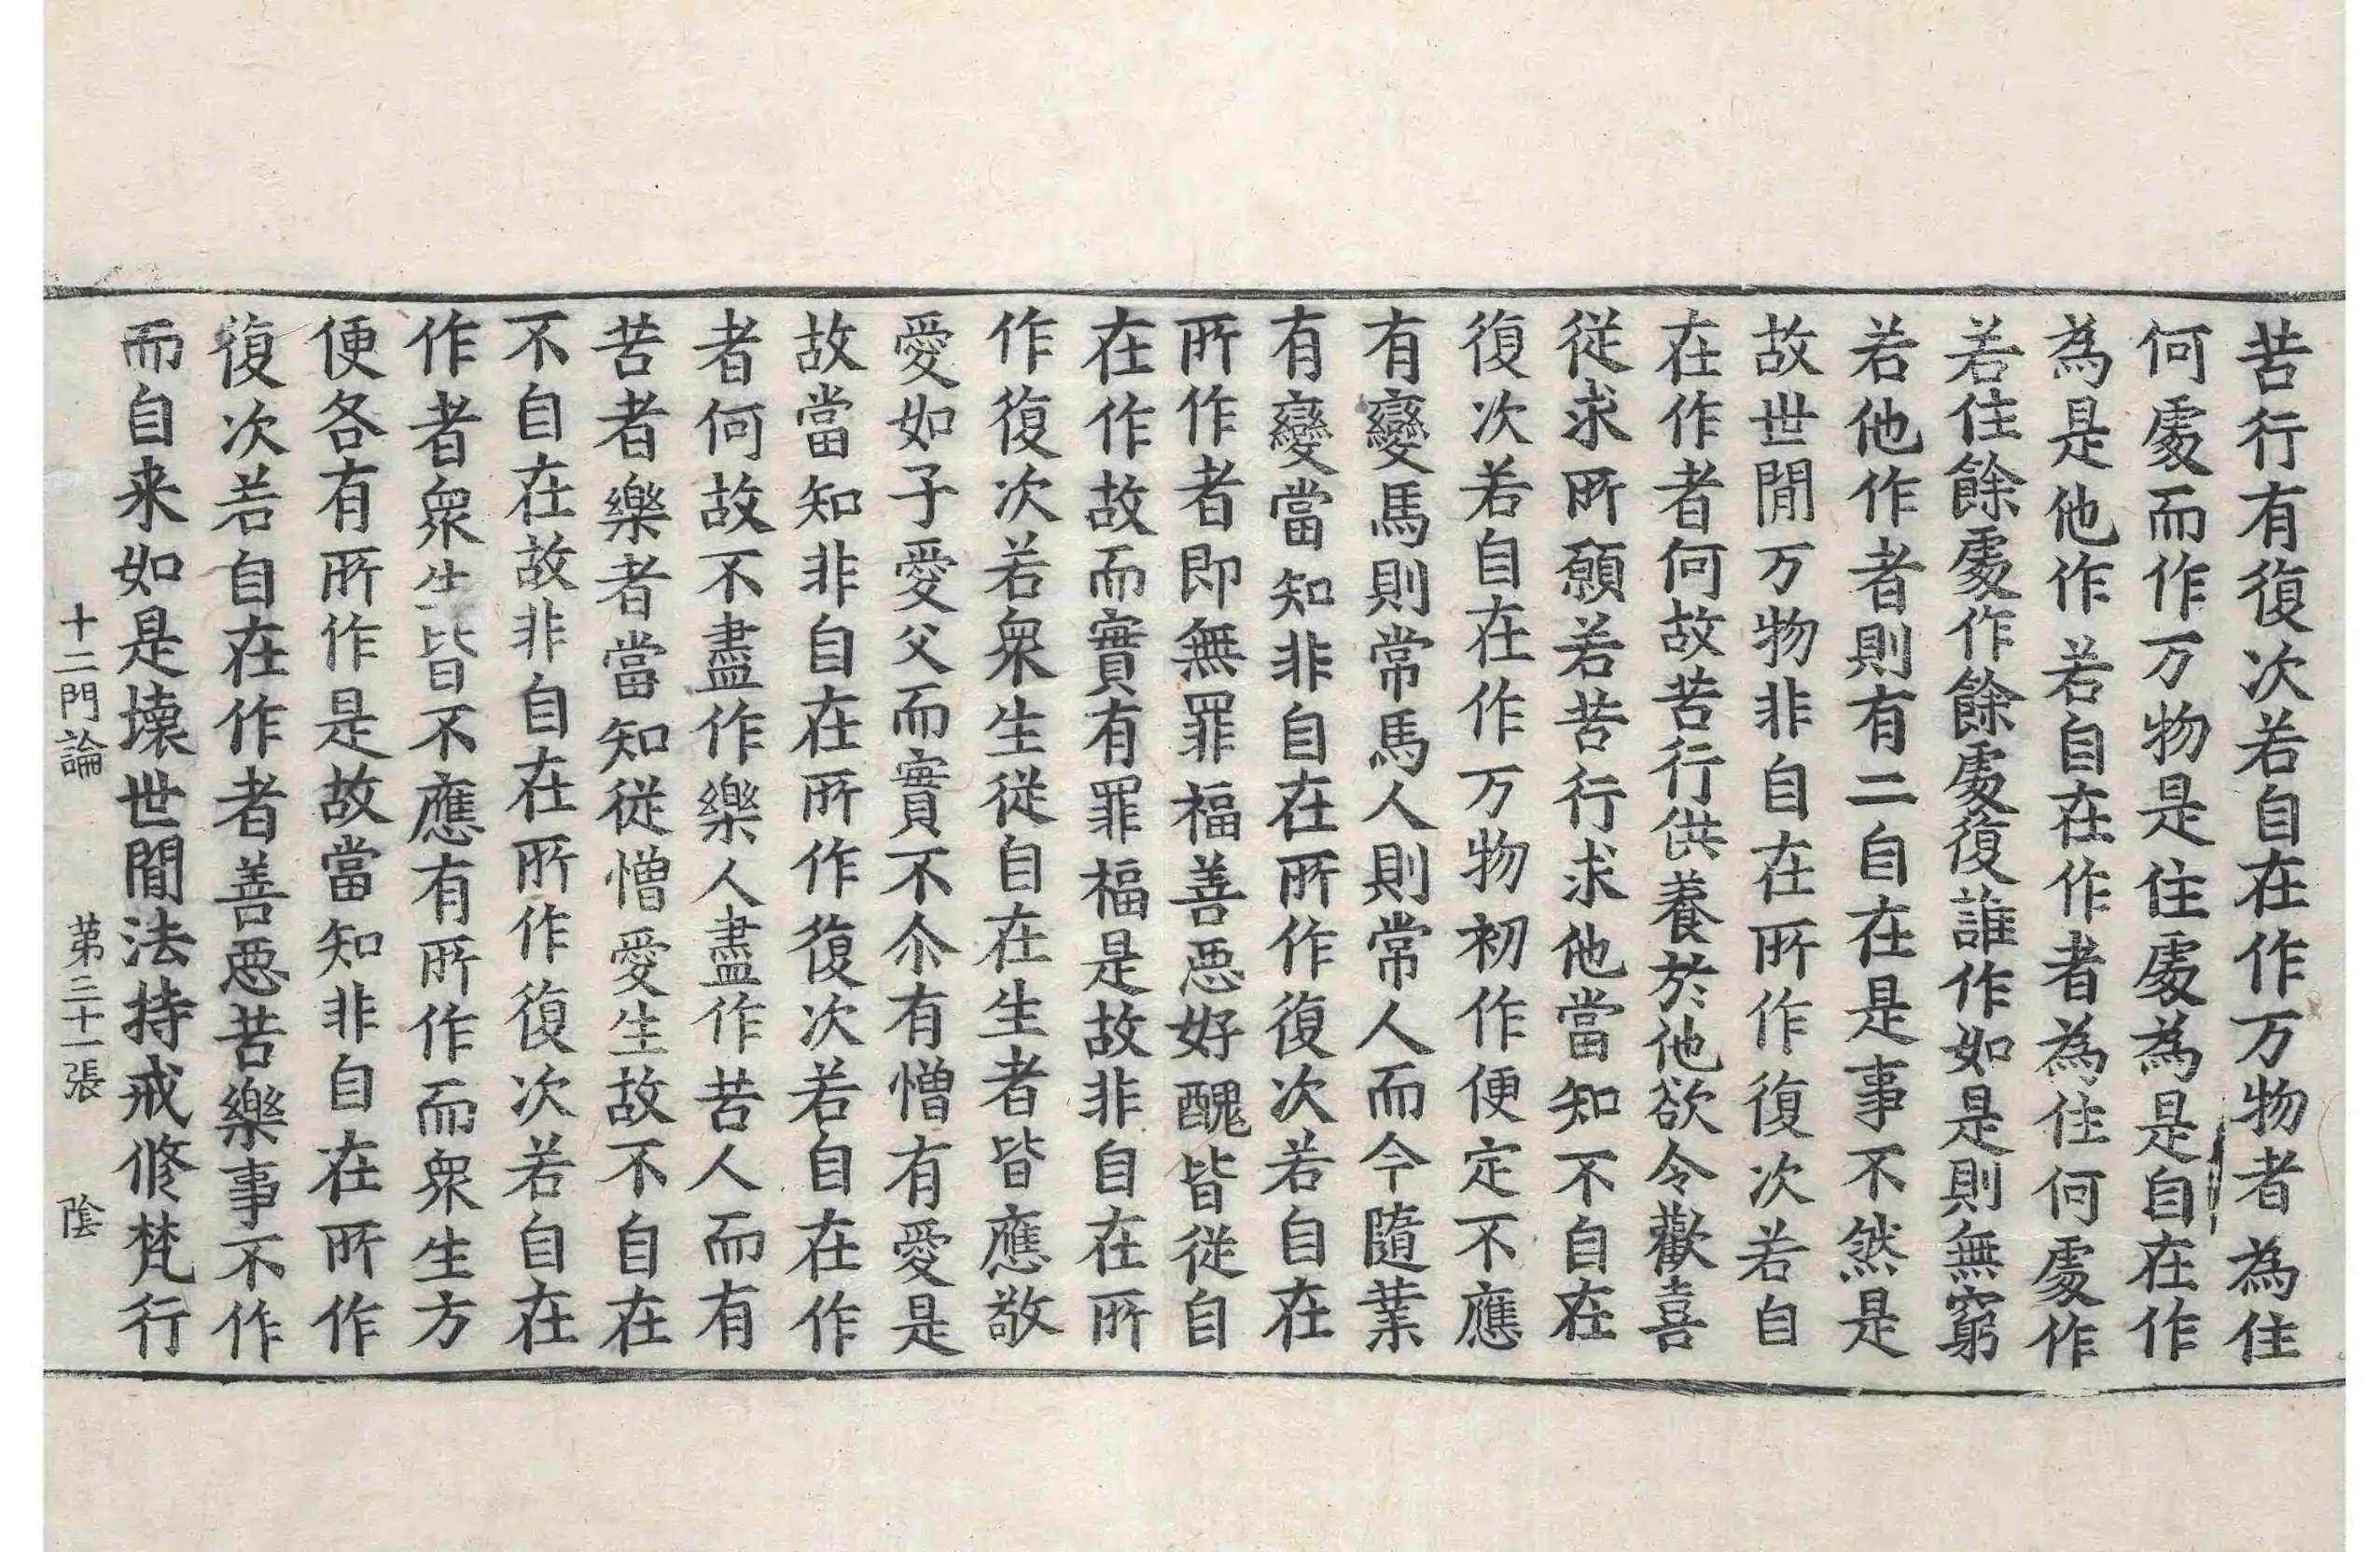 苦行有復次若自在作万物者為住
何處而作万物是住處為是自在作
為是他作若自在作者為住何處作
若住餘處作餘處復誰作如是則無窮
若他作者則有二自在是事不然是
故世間万物非自在所作復次若自
在作者何故苦行供養於他欲令歡喜
從求所願若苦行求他當知不自在
復次若自在作万物初作便定不應
有變馬則常馬人則常人而今隨業
有變當知非自在所作復次若自在
所作者即無罪福善惡好醜皆從自
在作故而實有罪福是故非自在所
作復次若衆生從自在生者皆應敬
愛如子愛父而實不尒有憎有愛是
故當知非自在所作復次若自在作
者何故不盡作樂人盡作苦人而有
苦者樂者當知從憎愛生故不自在
不自在故非自在所作復次若自在
作者衆生皆不應有所作而衆生方
便各有所作是故當知非自在所作
復次若自在作者善惡苦樂事不作
而自来如是壞世間法持戒修梵行
十二門論 第三十一張 陰